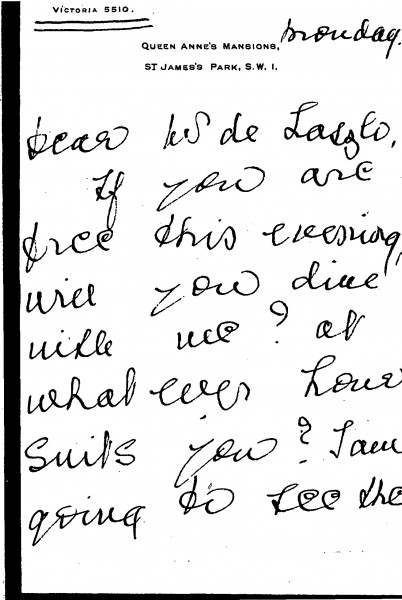 VICTORIA 5510.
QUEEN ANNE'S MANSIONS,
ST JAMES'S PARK, S.W. 1.
Monday.
Dear Mr de Laszlo,
If you are
free this evening,
will you dine
with me? at
whatever hour
suits you? I am
going to see the